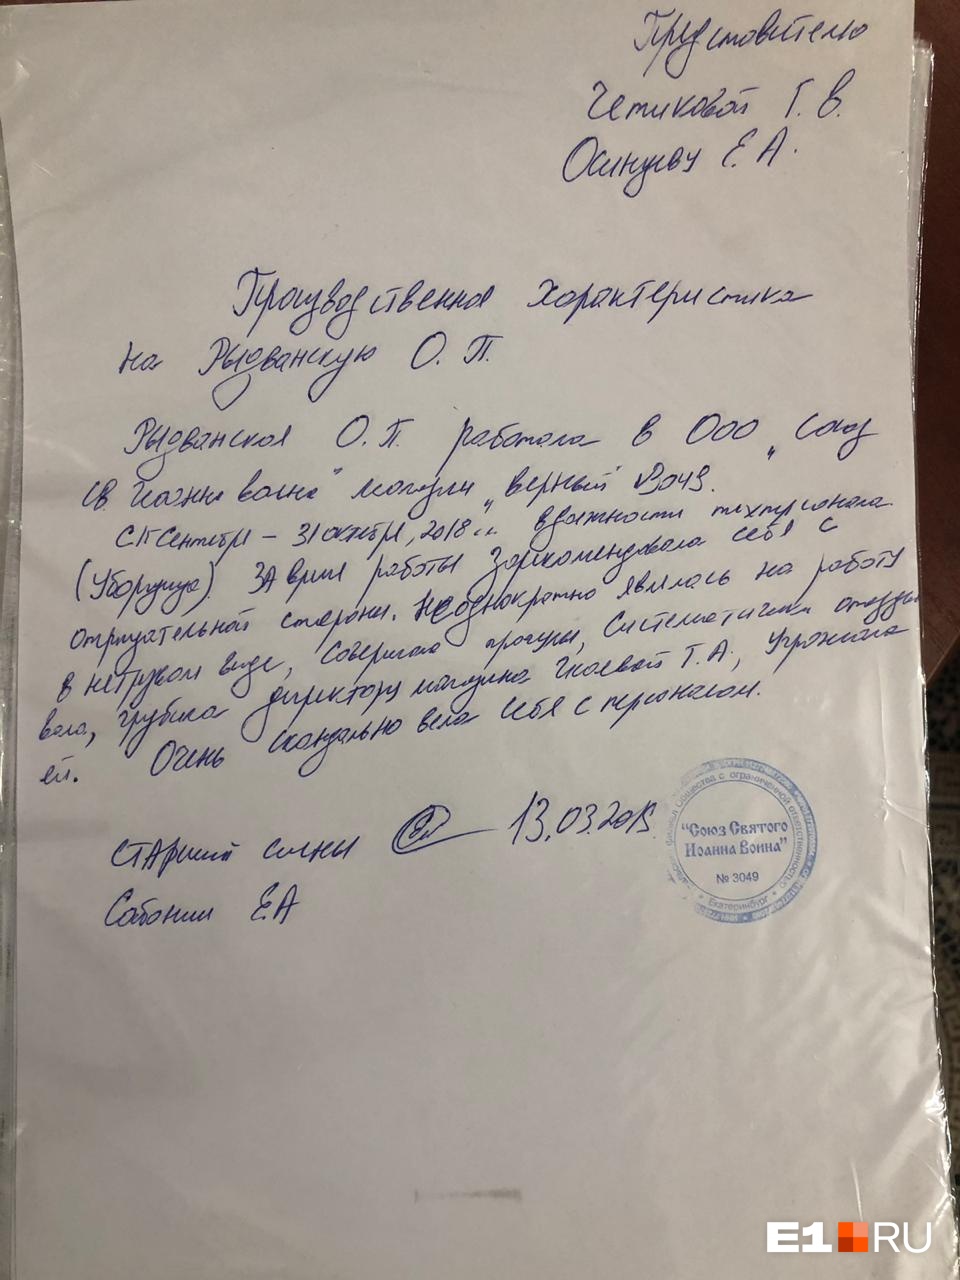 Представителю
Четиковой Г. В.
Осинцеву Е. А.
Производственная характеристика
на Рыдванскую О. П.
Рыдванская О. П. работала в ООО „Союз
св. Иоанна воина" магазин „Верный" 3049.
с 15 сентября – 31 октября, 2018 г. в должности техперсонала
(Уборщица). За время работы зарекомендовала себя с
отрицательной стороны. Неоднократно являлась на работу
в нетрезвом виде, совершала прогулы, систематически опазды
вала, грубила директору магазина Т. А., Угрожала
ей. Очень скандально вела себя с персоналом.
СТАрший смены 13.03.2019.
Е.А
Общества с ограниченной ответственностью
"Союз Святого
Иоанна Воина"
№ 3049
* Екатеринбург *
E1 RU